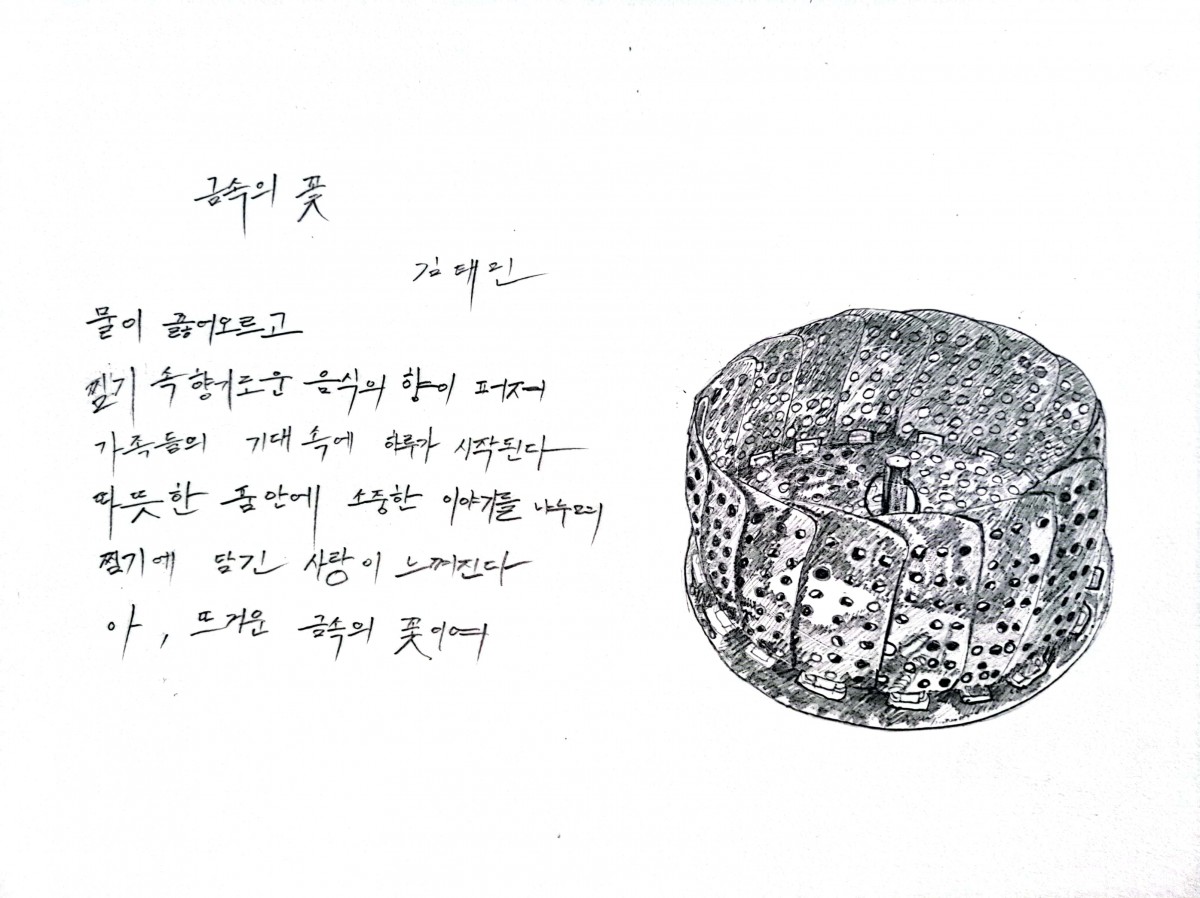 금속의 꽃
김태민
물이 끓어오르고
찜기 속 향기로운 음식의 향이 퍼져
가족들의 기대 속에 하루가 시작된다
따뜻한 품안에 소중한 이야기들 나누며
찜기에 담긴 사랑이 느껴진다
아, 뜨거운 금속의 꽃이여